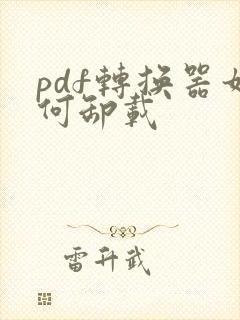 pdf轉换器如
何卸載
雷升武